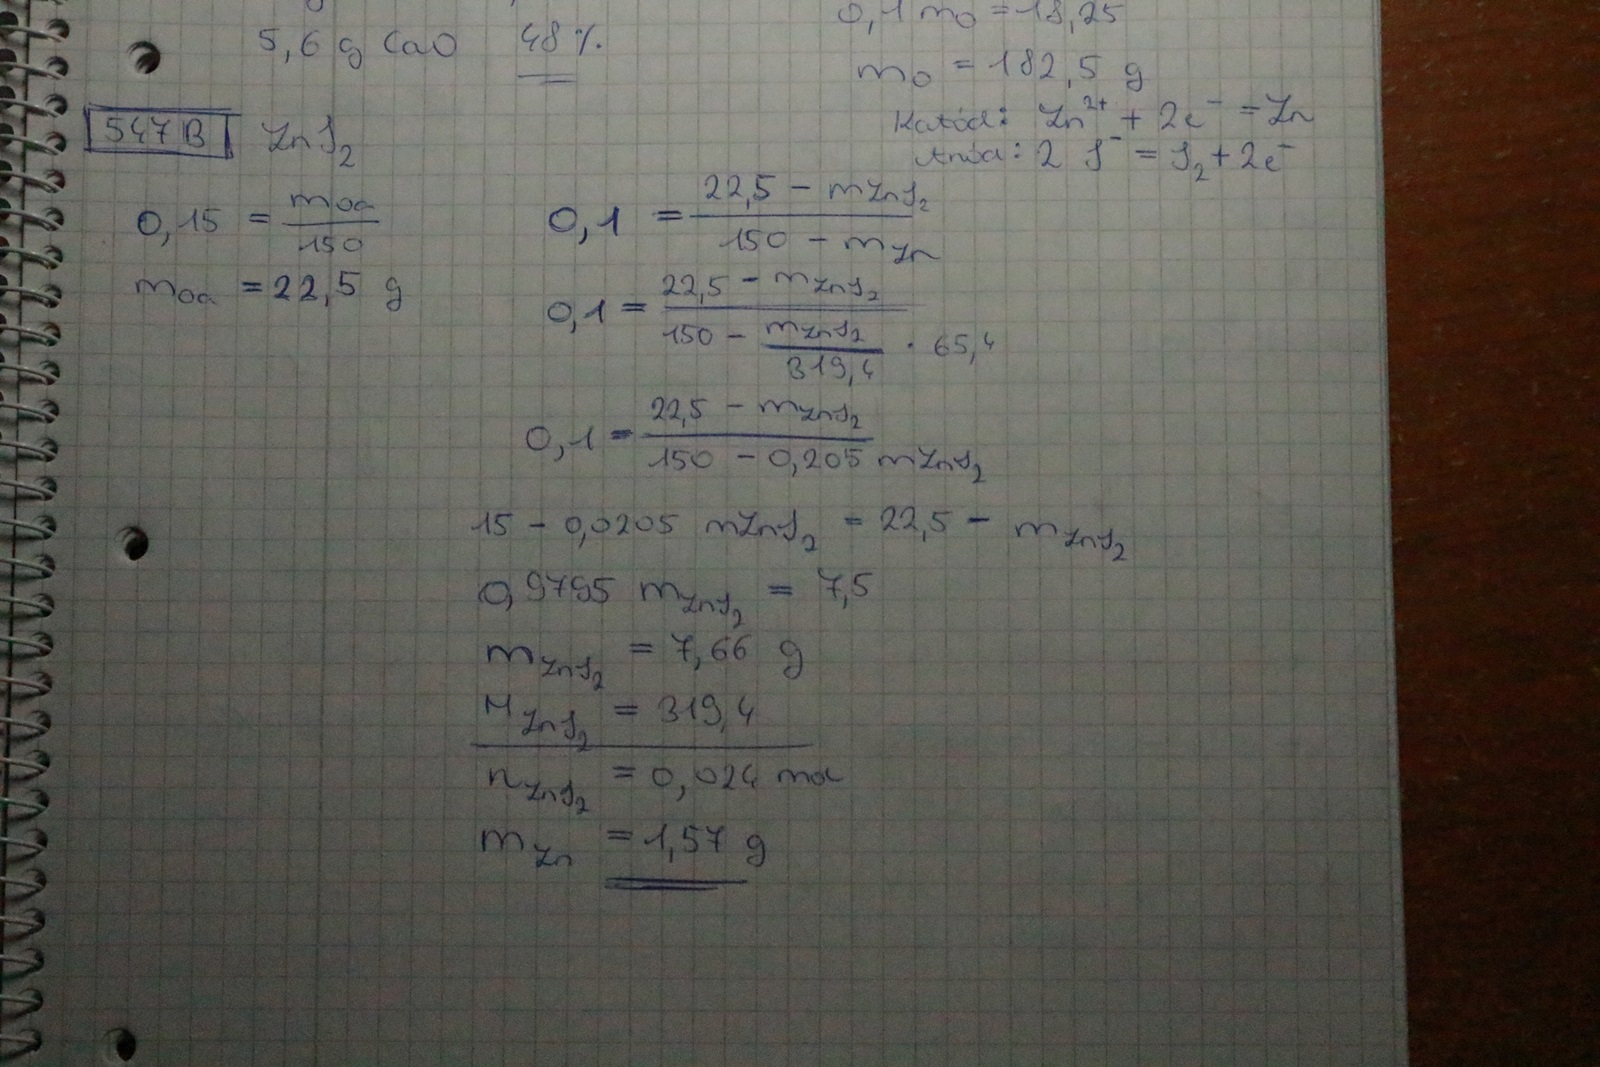 5,6 g CaO 48 %
0,1 m0 = 18,25
m0 = 182,5 g
547 B ZnJ2
Katód: Zn²⁺ + 2e⁻ = Zn
Anód: 2 J⁻ = J2 + 2e⁻
0,15 = moa / 150
moa = 22,5 g
0,1 = (22,5 - mZnJ2) / (150 - mZn)
0,1 = (22,5 - mZnJ2) / (150 - mZnJ2 / 319,4 · 65,4)
0,1 = (22,5 - mZnJ2) / (150 - 0,205 mZnJ2)
15 - 0,0205 mZnJ2 = 22,5 - mZnJ2
0,9795 mZnJ2 = 7,5
mZnJ2 = 7,66 g
MZnJ2 = 319,4
nZnJ2 = 0,024 mol
mZn = 1,57 g